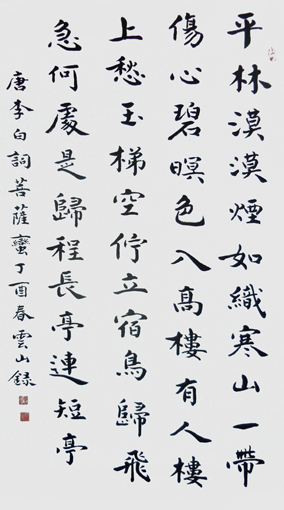 平林漠漠煙如織寒山一帶
傷心碧暝色入高樓有人樓
上愁玉梯空佇立宿鳥歸飛
急何處是歸程長亭連短亭
唐李白詞菩薩蠻丁酉春雲山錄